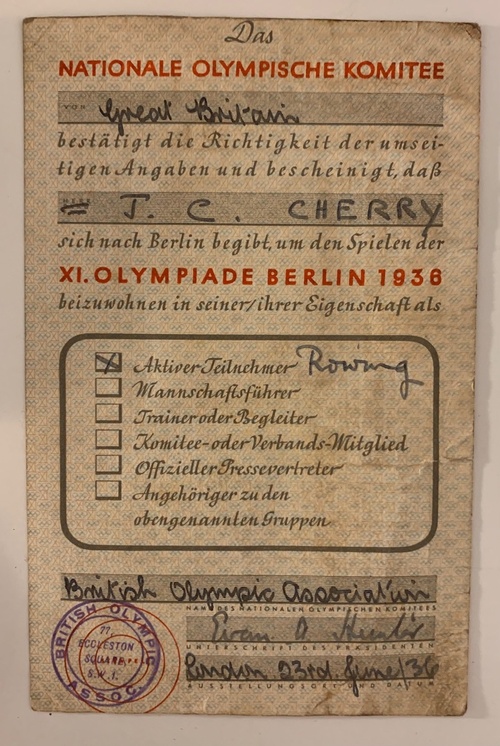 Das
NATIONALE OLYMPISCHE KOMITEE
VON Great Britain
bestätigt die Richtigkeit der umsei-
tigen Angaben und bescheinigt, daß
J. C. CHERRY
sich nach Berlin begibt, um den Spielen der
XI. OLYMPIADE BERLIN 1936
beizuwohnen in seiner/ihrer Eigenschaft als
X Aktiver Teilnehmer Rowing
Mannschaftsführer
Trainer oder Begleiter
Komitee- oder Verbands-Mitglied
Offizieller Pressevertreter
Angehöriger zu den
obengenannten Gruppen
British Olympic Association
NAME DES NATIONALEN OLYMPISCHEN KOMITEES
Evan A. Hunter
UNTERSCHRIFT DES PRÄSIDENTEN
London 23rd. June/36
AUSSTELLUNGSORT UND DATUM
BRITISH OLYMPIC ASSOC.
77,
ECCLESTON
SQUARE,
S.W.1.